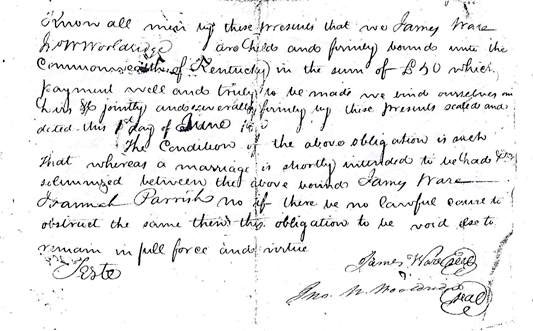 Know all men by these presents that we James Ware
Jno W Wooldridge are held and firmly bound unto the
Commonwealth of Kentucky in the sum of £50 which
payment well and truly to be made we bind ourselves our
heirs &c jointly and severally firmly by these presents sealed and
dated this 1st day of June
The Condition of the above obligation is such
that whereas a marriage is shortly intended to be had &
solemnized between the above bound James Ware
Parrish no if there be no lawful cause to
obstruct the same then this obligation to be void else to
remain in full force and virtue
Teste
James Ware seal
Jno. W. Wooldridge seal